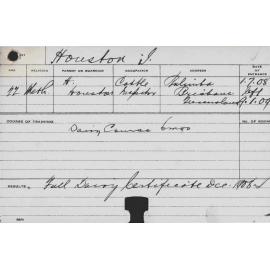 Houston J.
AGE RELIGION PARENT OR GUARDIAN OCCUPATION ADDRESS DATE OF ENTRANCE
22 Meth H. Houston Cattle Inspector Brisbane Queensland 1.7.08 left
COURSE OF TRAINING
Dairy Course 6 mos
RESULTS. Full Dairy Certificate Dec. 1908